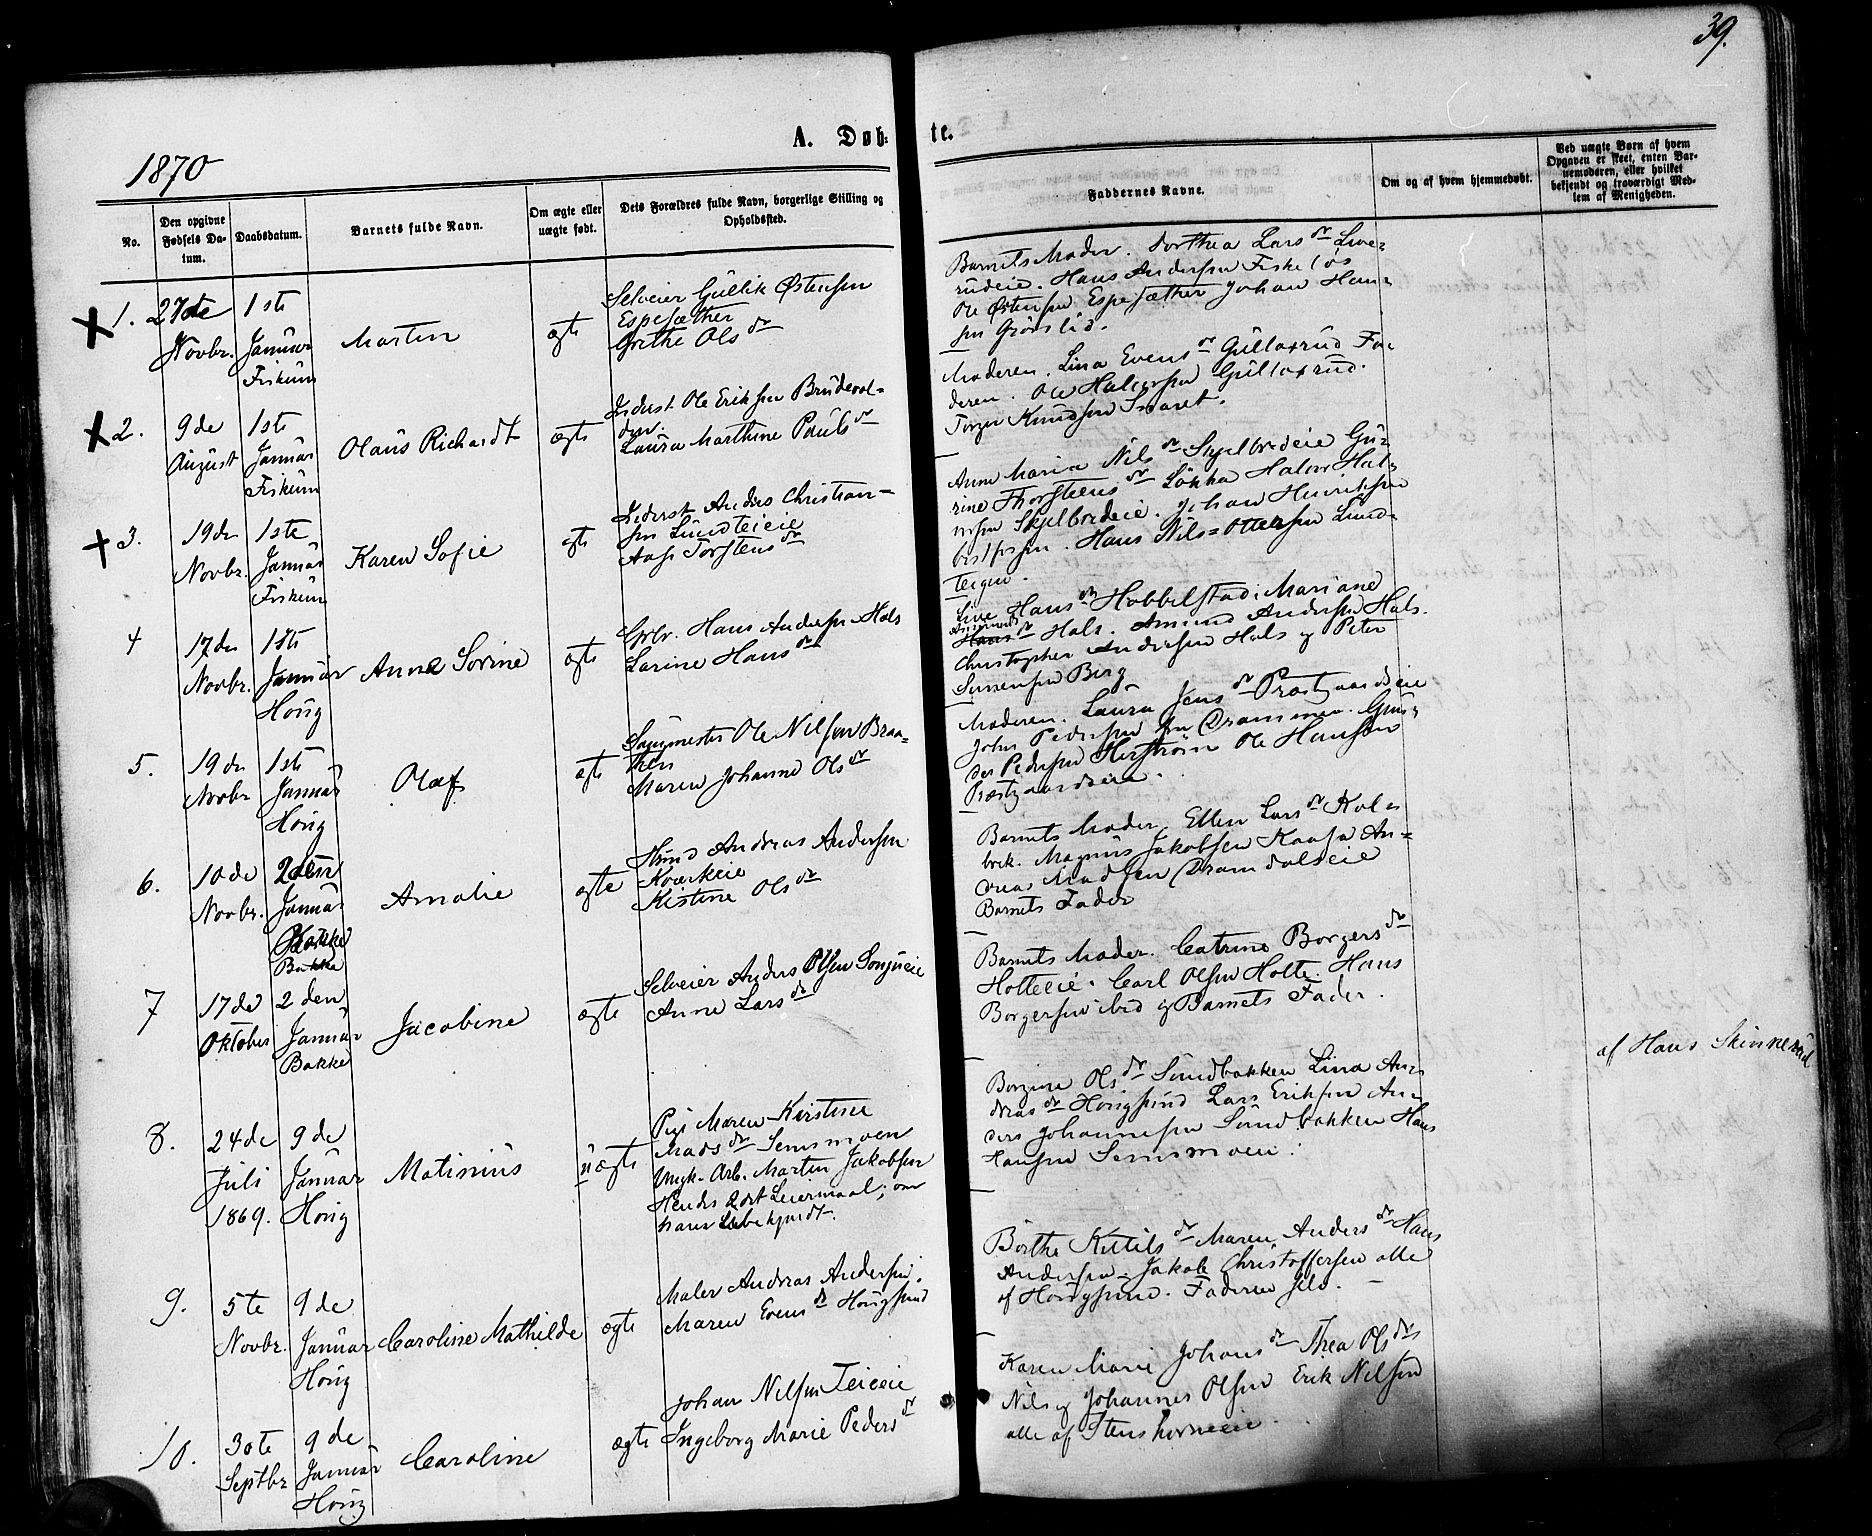 39.
1870
A. Døb-
te.
No.
Den opgivne
Fødsels Da-
tum.
Daabsdatum.
Barnets fulde Navn.
Om ægte eller
uægte født.
Dets Forældres fulde Navn, borgerlige Stilling og
Opholdssted.
Faddernes Navne.
Om og af hvem hjemmedøbt.
Ved uægte Børn af hvem
Opgaven er skeet, enten Bar-
nemoderen, eller hvilket
bekjendt og troværdigt Med-
lem af Menigheden.
1.
27de
Novbr.
1ste
Januar
Fiskum
Martin
ægte
Selveier Gullik Østensen
Espesæther
Grethe Olsdr
Barnets Moder. Dorthea Larsdr
rudeie. Hans Andersen Fiskeløs
Ole Østensen Espesæther Johan Han-
sen
2.
9de
August
1ste
Januar
Fiskum
Olaus Richardt
ægte
Inderst Ole Eriksen Brudevol-
den.
Laura Marthine Paulsdr
Moderen. Lina Evensdr Gullaxrud Fa-
deren. Ole Halvorsen Gullaxrud.
Knudsen
3.
19de
Novbr.
1ste
Januar
Fiskum
Karen Sofie
ægte
Inderst Anders Christian-
sen Lundteieie
Aase Torstensdr
Anne Maria Nilsdr Skjelbredeie Gu-
rine Thorsteensdr Løkka Halvor Hal-
vorsen Skjelbredeie. Johan Henriksen
Hans Nils= Ottersen Lund-
teigen.
4
17de
Novbr.
1ste
Januar
Houg
Anne Sorine
ægte
Hans Andersen Hals
Larine Hansdr
Live Hansdr Hobbelstad, Mariane
Hansdr Hals. Amund Andersen Hals.
Christopher Andersen Hals og Peter
Berg
5.
19de
Novbr
1ste
Januar
Houg
Olaf
ægte
Sagmester Ole Nilsen Braa-
then
Maren Johanne Olsdr
Moderen. Laura Jensdr Præstgaardseie
John Pedersen fra Drammen. Gun-
der Pedersen Ole Hansen
Præstgaardseie.
6.
10de
Novbr.
2den
Januar
Bakke
Amalie
ægte
Andreas Andersen
Kværkeie
Kistine Olsdr
Barnets Moder, Ellen Larsdr Kol-
brek. Magnus Jakobsen An-
dreas Madsen Dramdalseie
Barnets Fader
7
17de
Oktober
2den
Januar
Bakke
Jacobine
ægte
Selveier Anders Olsen Sonjueie
Anne Larsdr
Barnets Moder. Catrine Borgersdr
Holteeie. Carl Olsen Holte. Hans
Borgersen ibid og Barnets Fader.
8.
24de
Juli
1869.
9de
Januar
Houg
Matinius
uægte
Pige Maren Kirstine
Madsdr Semsmoen
Ungk. Arb. Martin Jakobsen
Hendes 2det Leiermaal; om
hans Ubekjendt.
Borgine Olsdr Sundbakken Lina An-
dreasdr Hougsund Lars Eriksen An-
ders Johannesen Sundbakken Hans
Hansen Semsmoen.
af Hans Skinnerud
9.
5te
Novbr.
9de
Januar
Houg
Caroline Mathilde
ægte
Maler Andreas Andersen.
Maren Evensdr Hougsund
Børthe Kittilsdr Maren Andersdr Hans
Andersen, Jakob Christoffersen alle
af Hougsund. Faderen selv.
10.
30te
Septbr
9de
Januar
Houg
Caroline
ægte
Johan Nilsen Teieeie
Ingeborg Marie Pedersdr
Karen Marie Johansdr Thea Olsdr
Nils og Johannes Olsen Erik Nilsen
alle af Stenshorneeie.